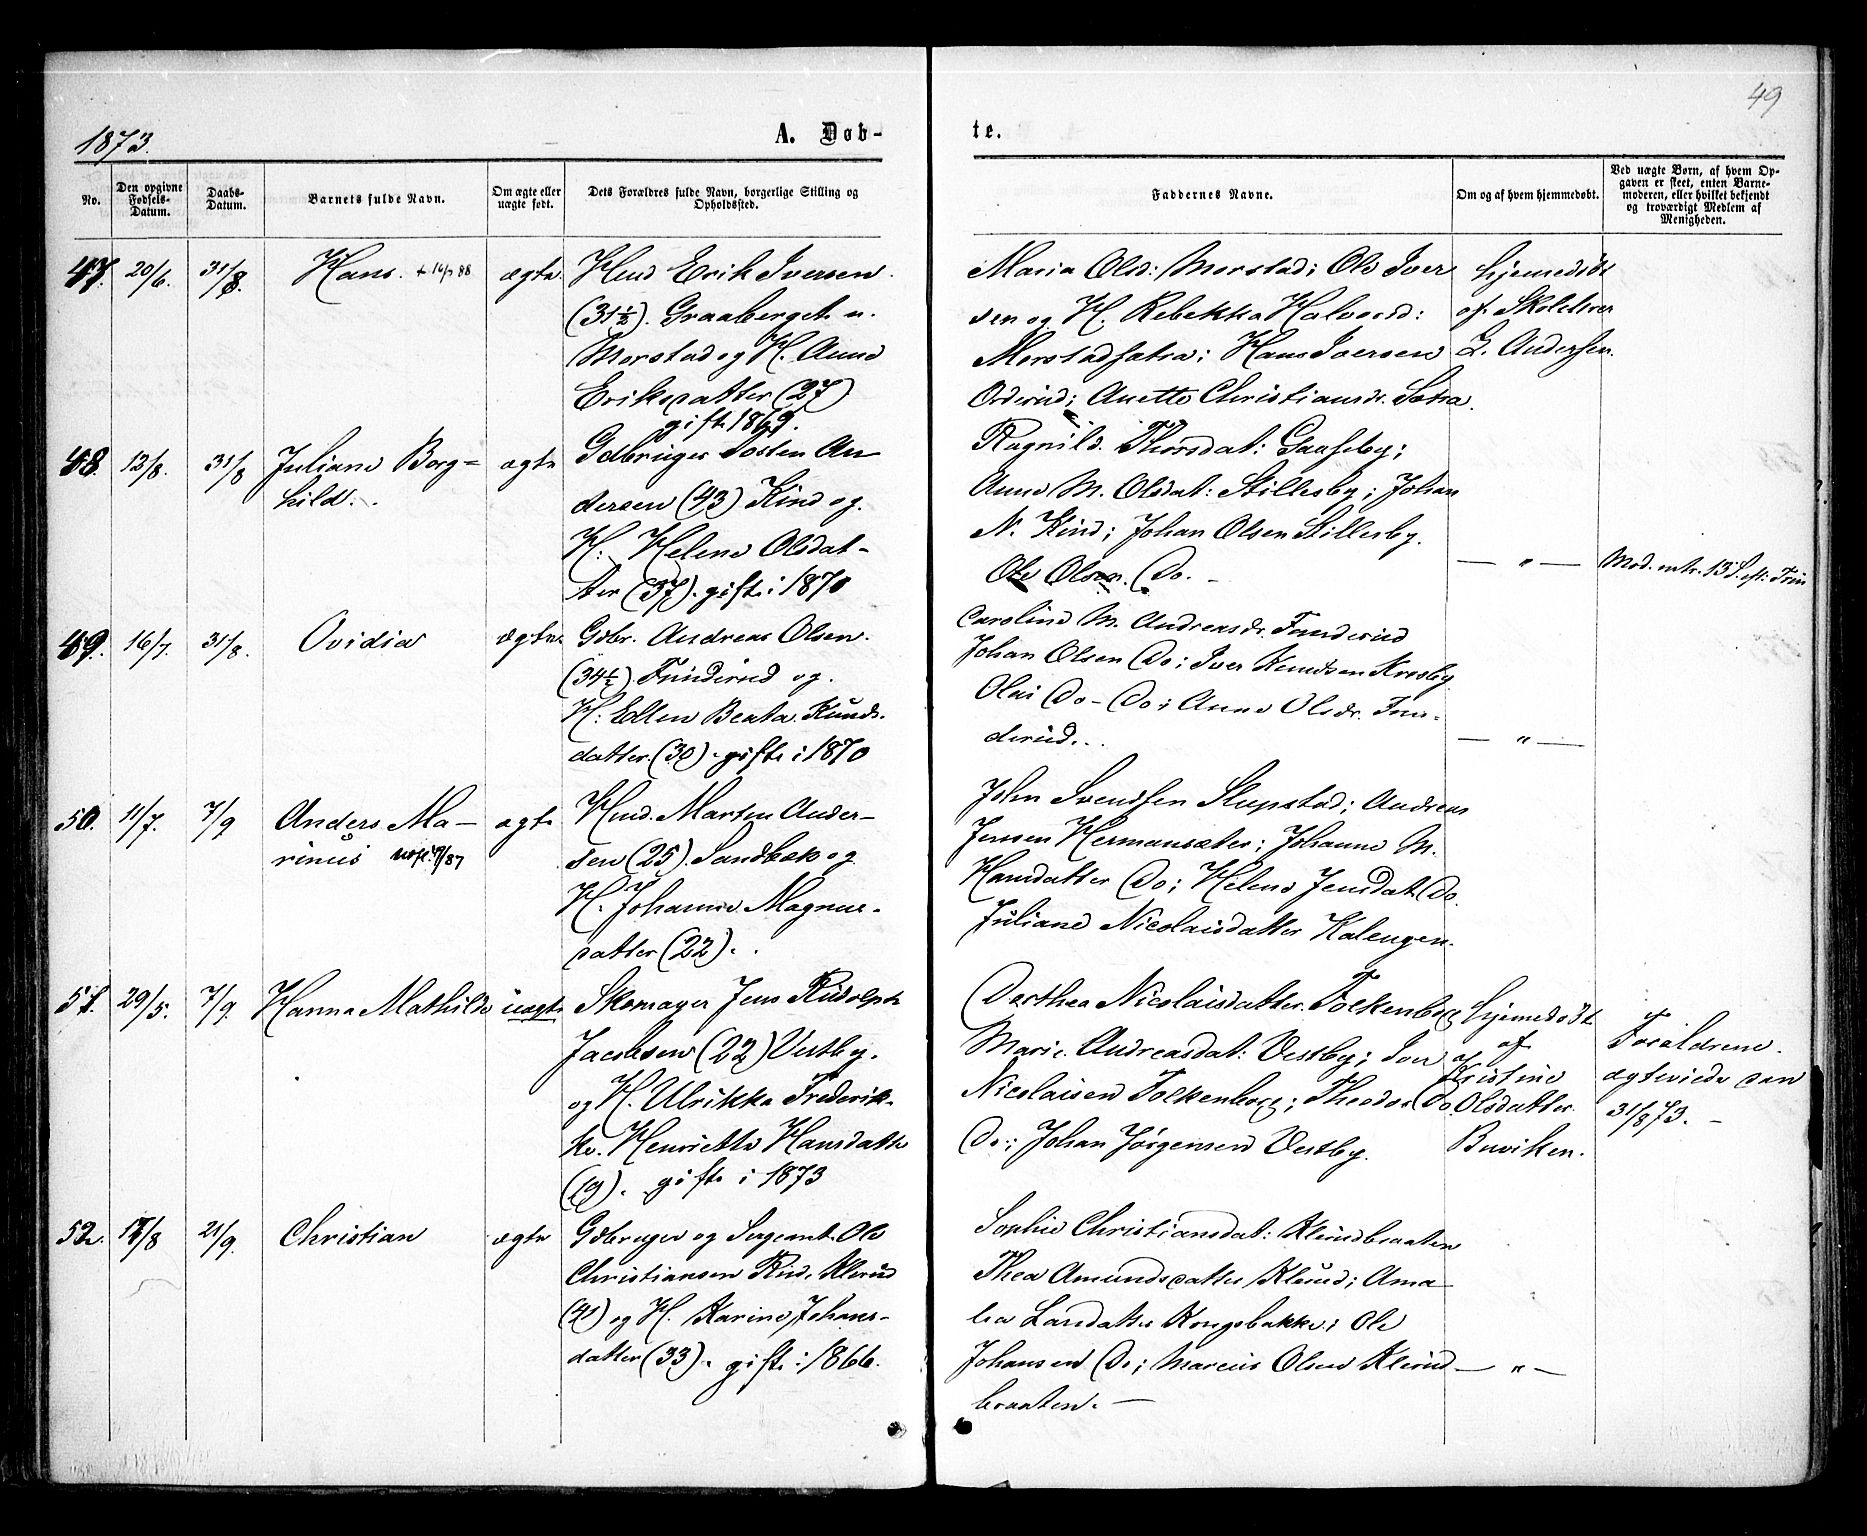 49
1873.
A. Døb-
te.
No.
Den opgivne Fødsels-Datum.
Daabs-Datum.
Barnets fulde Navn.
Om ægte eller uægte født.
Dets Forældres fulde Navn, borgerlige Stilling og Opholdssted.
Faddernes Navne.
Om og af hvem hjemmedøbt.
Ved uægte Børn, af hvem Opgaven er skeet, enten Barnemoderen, eller hvilket bekjendt og troværdigt Medlem af Menigheden.
47. 20/6. 31/8. Hans. ægte
Hmd Erik Iversen
(31½). Graaberget u.
Morstad og H. Anne
Eriksdatter (27)
gift 1869.
Maria Olsd: Morstad; Ole Iver
sen og H. Rebekka Halvorsd:
Morstadsætra; Hans Iversen
Orderud; Anette Christiansdr. Sætra.
hjemedøbt
af Skolelærer
L. Andersen.
48. 12/8. 31/8 Juliane Borg=
hild. ægte
Gdbruger Josten An
dersen (43) Kind og
H: Helene Olsdat-
ter (37). gifte i 1870
Ragnild Thorsdat: Gaaseby;
Anne M. Olsdat: Stillesby; Johan
N. Kind; Johan Olsen Stillesby.
Ole Olsen. Do. -
— " —
49. 16/7. 31/8. Ovidia ægte.
Gdbr. Andreas Olsen.
(34½). Funderud og.
H: Edlen Beata Knuds.
datter (30). gifte i 1870
Caroline M. Andreasdr. Funderud
Johan Olsen Do; Iver Knudsen Krosby
Olai Do - Do; Anne Olsdr. Fun-
derud.
— " —
50. 11/7. 7/9 Anders Ma-
rinus ægte
Hmd. Marten Ander-
sen (25). Sandbæk og
H. Johanne Magnus-
datter (22).
John Svendsen Slupstad; Andreas
Jensen Hermansæter; Johanne M.
Hansdatter Do; Helene Jensdat. Do.
Juliane Nicolaisdatter Kalengen.
51. 29/5. 7/9. Hanna Mathilde uægte
Skomager Jens Rudolph
Jacobsen (22) Vestby.
og H. Ulrikka Frederik-
ke Henriette Hansdatter
(19). gifte i 1873
Dorthea Nicolaisdatter. Folkenborg
Marie Andreasdat: Vestby; Iver
Nicolaisen Folkenborg; Theodor Do
Do; Johan Jørgensen Vestby.
Hjemedøbt
af
Kristine
Olsdatter
Buviken.
Forældrene
ægteviede den
31/8 73. -
52. 17/8 21/9. Christian ægte
Gdbruger og Sergeant Ole
Christiansen Rud, Klerud
(41) og H. Karine Johans-
datter (33). gifte i 1866.
Sophie Christiansdat: Klerudbraaten
Thea Amundsdatter Klerud; Ama
lia Larsdatter Kongsbakke; Ole
Johansen Do; Marius Olsen Klerud
braaten. —
— " —